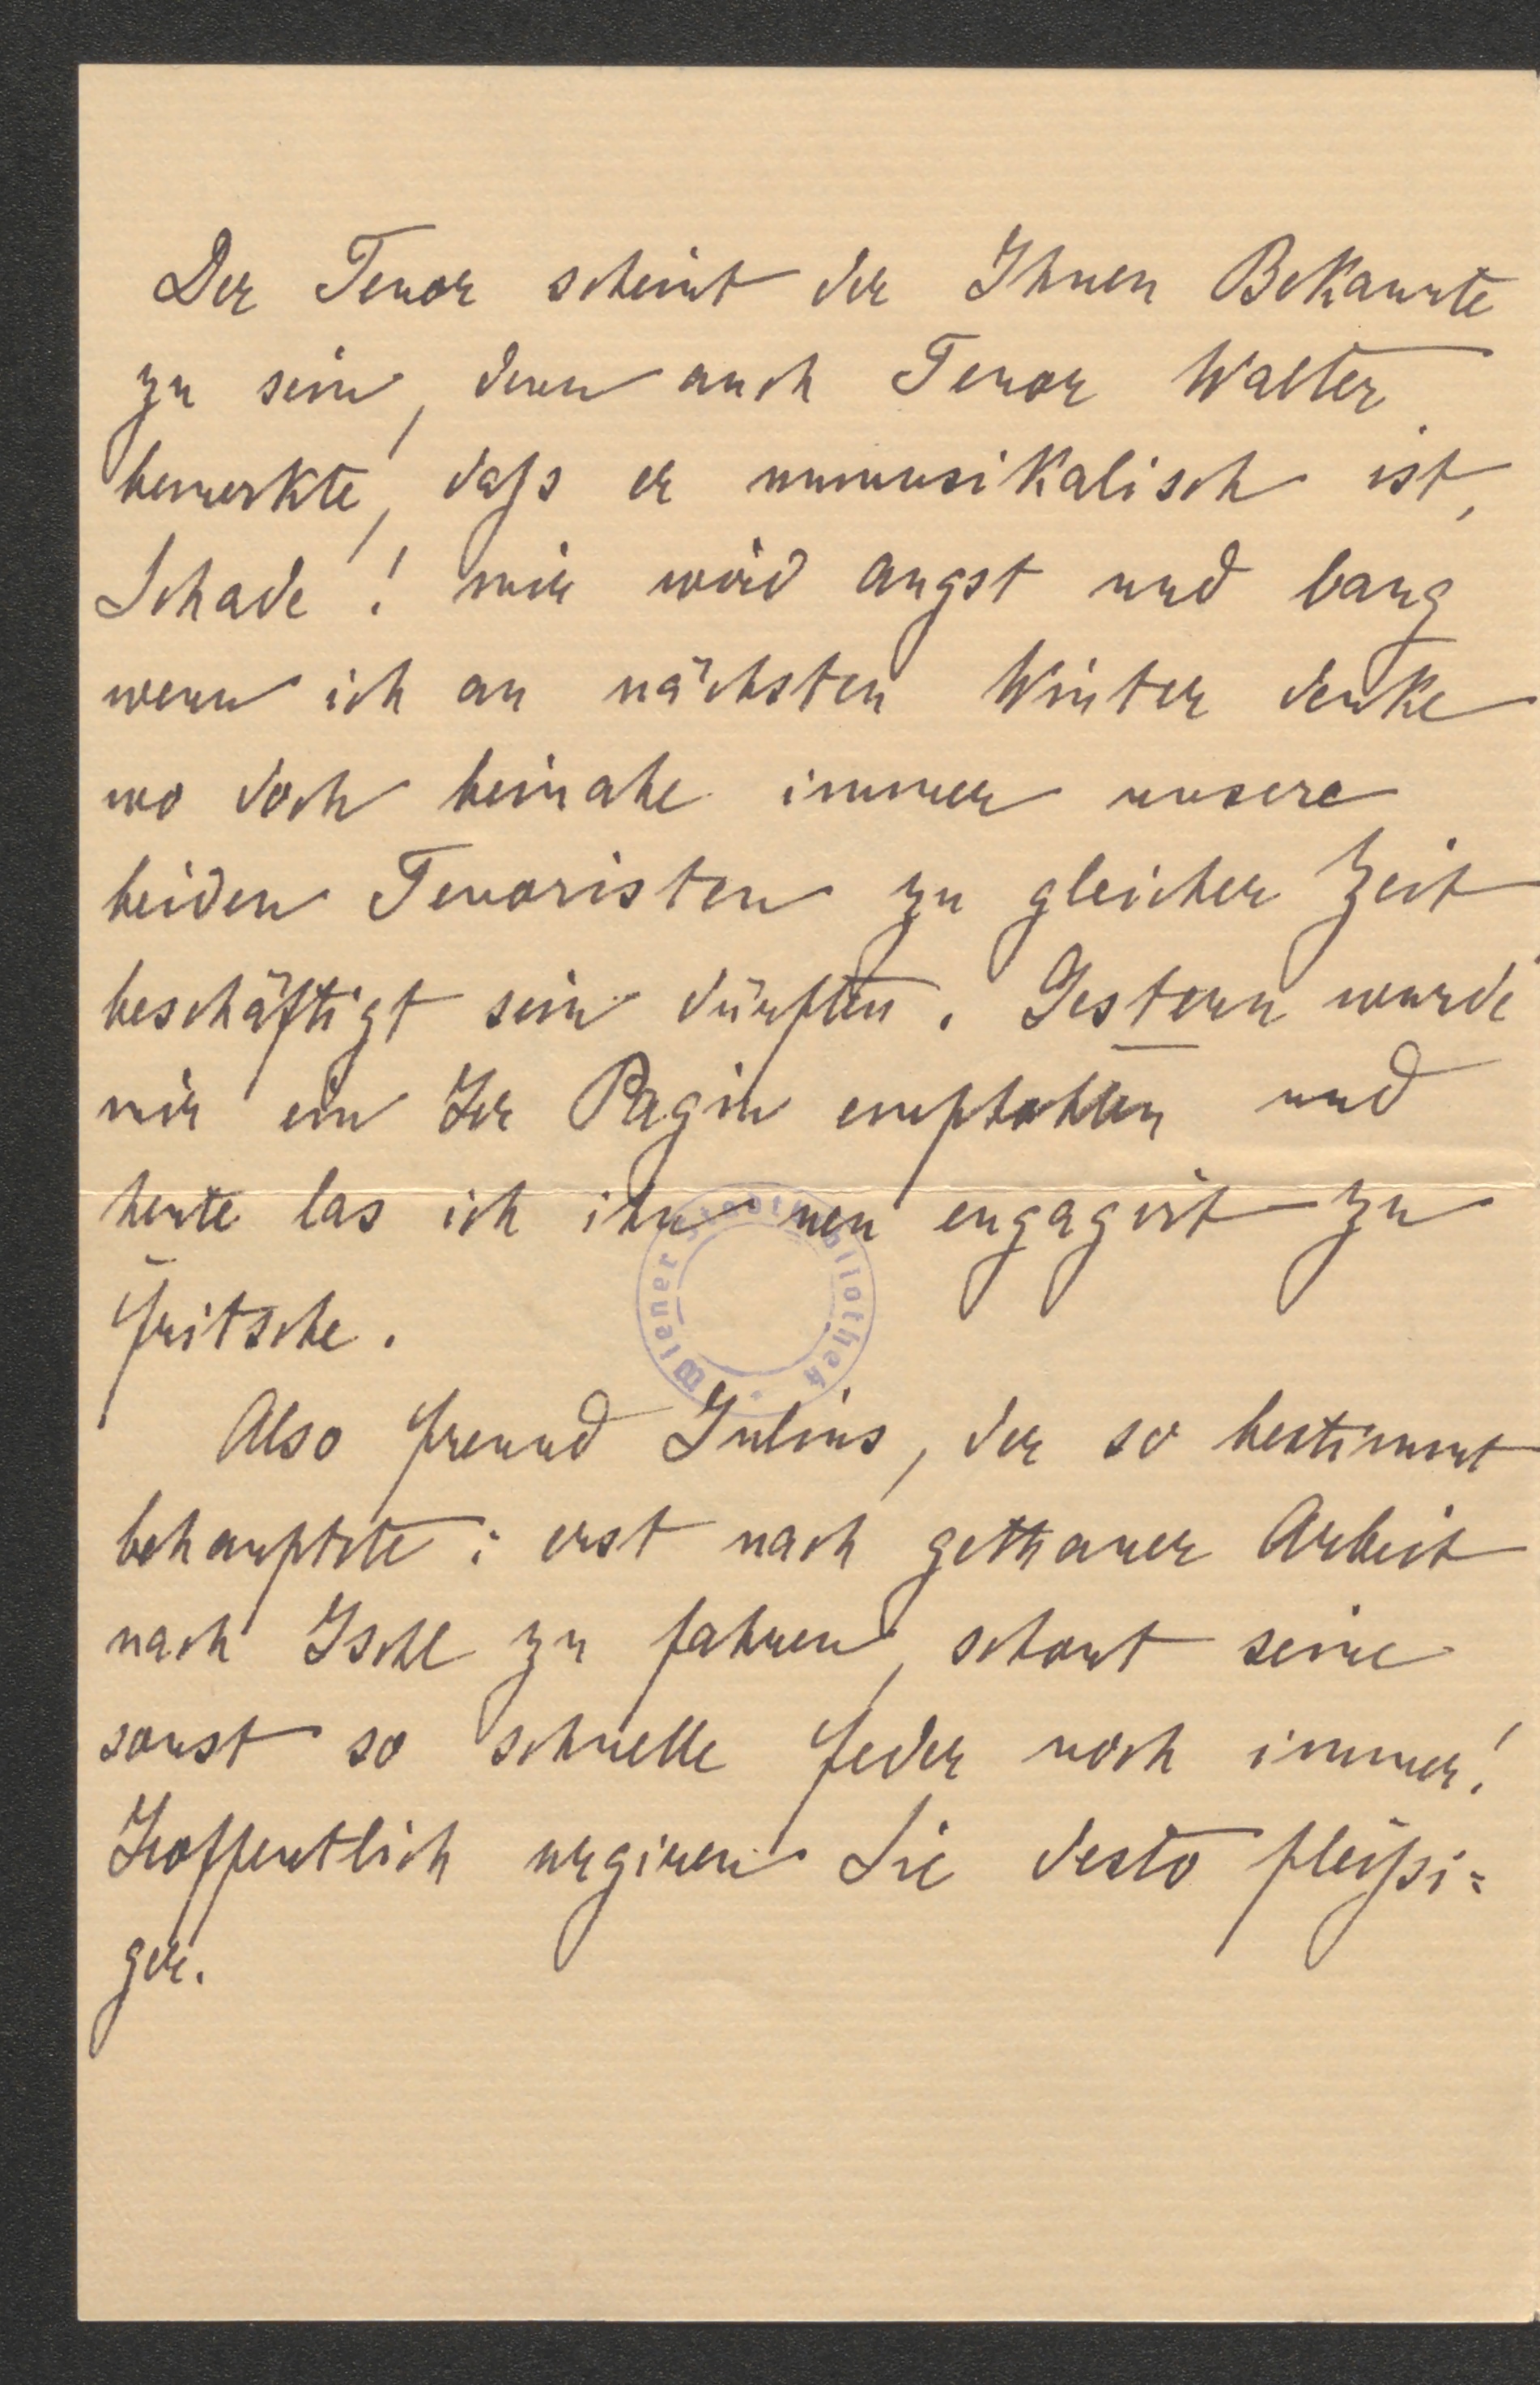 Der Tenor scheint der Ihnen Bekannte
zu sein, denn auch Tenor Walter
bemerkte, daß er unmusikalisch ist,
Schade! mir wird angst und bang
wenn ich an nächsten Winter denke
wo doch beinahe immer unsere
beiden Tenoristen zu gleicher Zeit
beschäftigt sein dürften. Gestern wurde
mir ein Hr Pagin empfohlen und
heute las ich ihn neu engagirt zu
Fritsche.
Also Freund Julius, der so bestimmt
behauptete: erst nach gethaner Arbeit
nach Ischl zu fahren, schont seine
sonst so schnelle Feder noch immer!
Hoffentlich urgiren Sie desto fleißi=
ger.
Wiener Stadtbibliothek